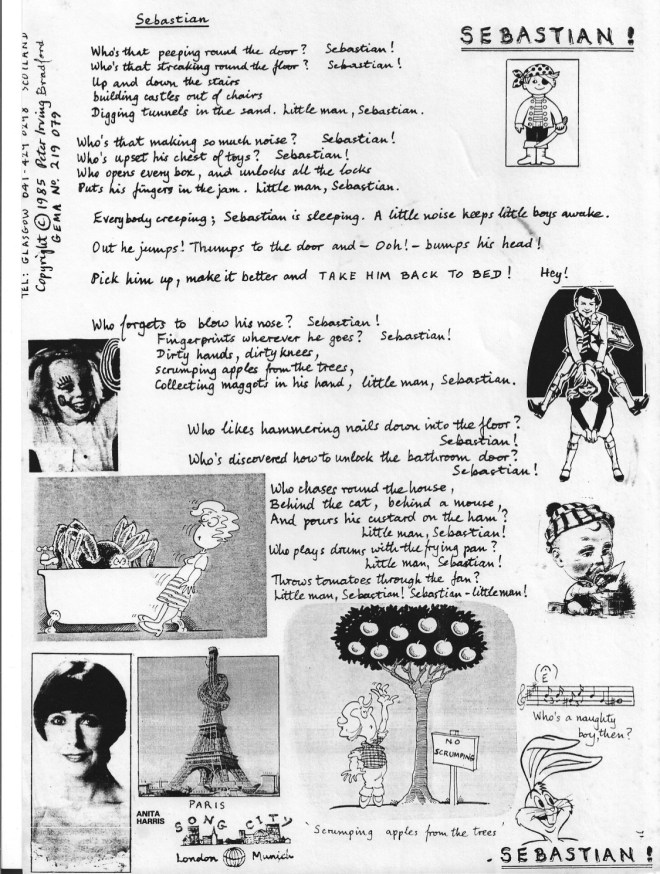 Sebastian
SEBASTIAN !
Who's that peeping round the door? Sebastian!
Who's that streaking round the floor? Sebastian!
Up and down the stairs
building castles out of chairs
Digging tunnels in the sand. Little man, Sebastian.
Who's that making so much noise? Sebastian!
Who's upset his chest of toys? Sebastian!
Who opens every box, and unlocks all the locks
Puts his fingers in the jam. Little man, Sebastian.
Everybody creeping; Sebastian is sleeping. A little noise keeps little boys awake.
Out he jumps! Thumps to the door and – Ooh! – bumps his head!
Pick him up, make it better and TAKE HIM BACK TO BED! Hey!
TEL: GLASGOW 041-424 0298 SCOTLAND
Copyright © 1985 Peter Irving Bradford
GEMA No. 219 079
Who forgets to blow his nose? Sebastian!
Fingerprints wherever he goes? Sebastian!
Dirty hands, dirty knees,
scrumping apples from the trees,
Collecting maggots in his hand, little man, Sebastian.
Who likes hammering nails down into the floor?
Sebastian!
Who's discovered how to unlock the bathroom door?
Sebastian!
Who chases round the house,
Behind the cat, behind a mouse,
And pours his custard on the ham?
Little man, Sebastian!
Who plays drums with the frying pan?
Little man, Sebastian!
Throws tomatoes through the fan?
Little man, Sebastian! Sebastian – little man!
NO
SCRUMPING
'Scrumping apples from the trees'
ANITA
HARRIS
PARIS
SONG CITY
London Munich
(E)
Who's a naughty
boy, then?
SEBASTIAN !